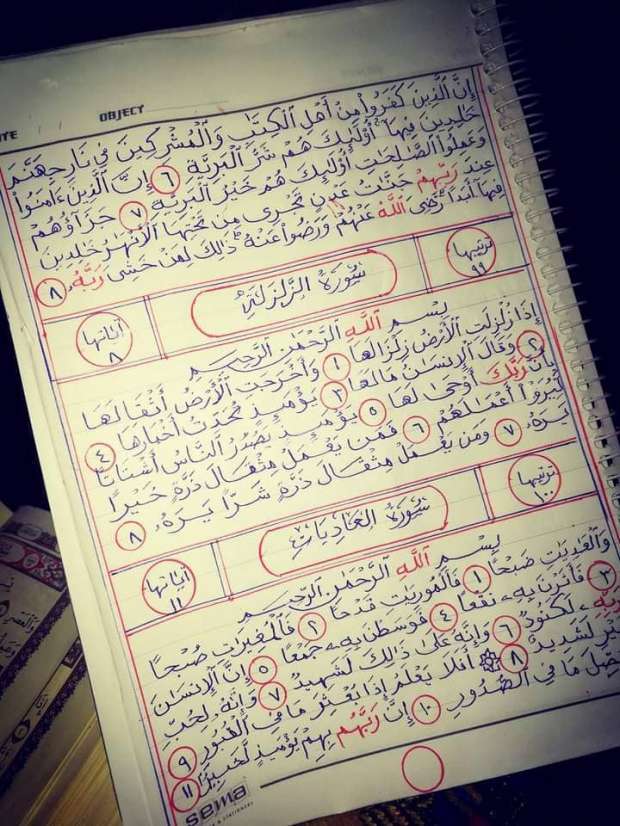 OBJECT
إِنَّ ٱلَّذِينَ كَفَرُوا۟ مِنْ أَهْلِ ٱلْكِتَـٰبِ وَٱلْمُشْرِكِينَ فِى نَارِ جَهَنَّمَ
خَـٰلِدِينَ فِيهَآ أُو۟لَـٰٓئِكَ هُمْ شَرُّ ٱلْبَرِيَّةِ ٦ إِنَّ ٱلَّذِينَ ءَامَنُوا۟
وَعَمِلُوا۟ ٱلصَّـٰلِحَـٰتِ أُو۟لَـٰٓئِكَ هُمْ خَيْرُ ٱلْبَرِيَّةِ ٧ جَزَآؤُهُمْ
عِندَ رَبِّهِمْ جَنَّـٰتُ عَدْنٍ تَجْرِى مِن تَحْتِهَا ٱلْأَنْهَـٰرُ خَـٰلِدِينَ
فِيهَآ أَبَدًا رَّضِىَ ٱللَّهُ عَنْهُمْ وَرَضُوا۟ عَنْهُ ذَٰلِكَ لِمَنْ خَشِىَ رَبَّهُۥ ٨
ترتيبها ٩٩ سُورَةُ الزَّلْزَلَةِ آياتها ٨
بِسْمِ ٱللَّهِ ٱلرَّحْمَـٰنِ ٱلرَّحِيمِ
إِذَا زُلْزِلَتِ ٱلْأَرْضُ زِلْزَالَهَا ١ وَأَخْرَجَتِ ٱلْأَرْضُ أَثْقَالَهَا
٢ وَقَالَ ٱلْإِنسَـٰنُ مَا لَهَا ٣ يَوْمَئِذٍ تُحَدِّثُ أَخْبَارَهَا ٤
بِأَنَّ رَبَّكَ أَوْحَىٰ لَهَا ٥ يَوْمَئِذٍ يَصْدُرُ ٱلنَّاسُ أَشْتَاتًا
لِّيُرَوْا۟ أَعْمَـٰلَهُمْ ٦ فَمَن يَعْمَلْ مِثْقَالَ ذَرَّةٍ خَيْرًا
يَرَهُۥ ٧ وَمَن يَعْمَلْ مِثْقَالَ ذَرَّةٍ شَرًّا يَرَهُۥ ٨
ترتيبها ١٠٠ سُورَةُ العَادِيَاتِ آياتها ١١
بِسْمِ ٱللَّهِ ٱلرَّحْمَـٰنِ ٱلرَّحِيمِ
وَٱلْعَـٰدِيَـٰتِ ضَبْحًا ١ فَٱلْمُورِيَـٰتِ قَدْحًا ٢ فَٱلْمُغِيرَٰتِ صُبْحًا
٣ فَأَثَرْنَ بِهِۦ نَقْعًا ٤ فَوَسَطْنَ بِهِۦ جَمْعًا ٥ إِنَّ ٱلْإِنسَـٰنَ
لِرَبِّهِۦ لَكَنُودٌ ٦ وَإِنَّهُۥ عَلَىٰ ذَٰلِكَ لَشَهِيدٌ ٧ وَإِنَّهُۥ لِحُبِّ
ٱلْخَيْرِ لَشَدِيدٌ ٨ أَفَلَا يَعْلَمُ إِذَا بُعْثِرَ مَا فِى ٱلْقُبُورِ ٩
وَحُصِّلَ مَا فِى ٱلصُّدُورِ ١٠ إِنَّ رَبَّهُم بِهِمْ يَوْمَئِذٍ لَّخَبِيرٌ ١١
sema